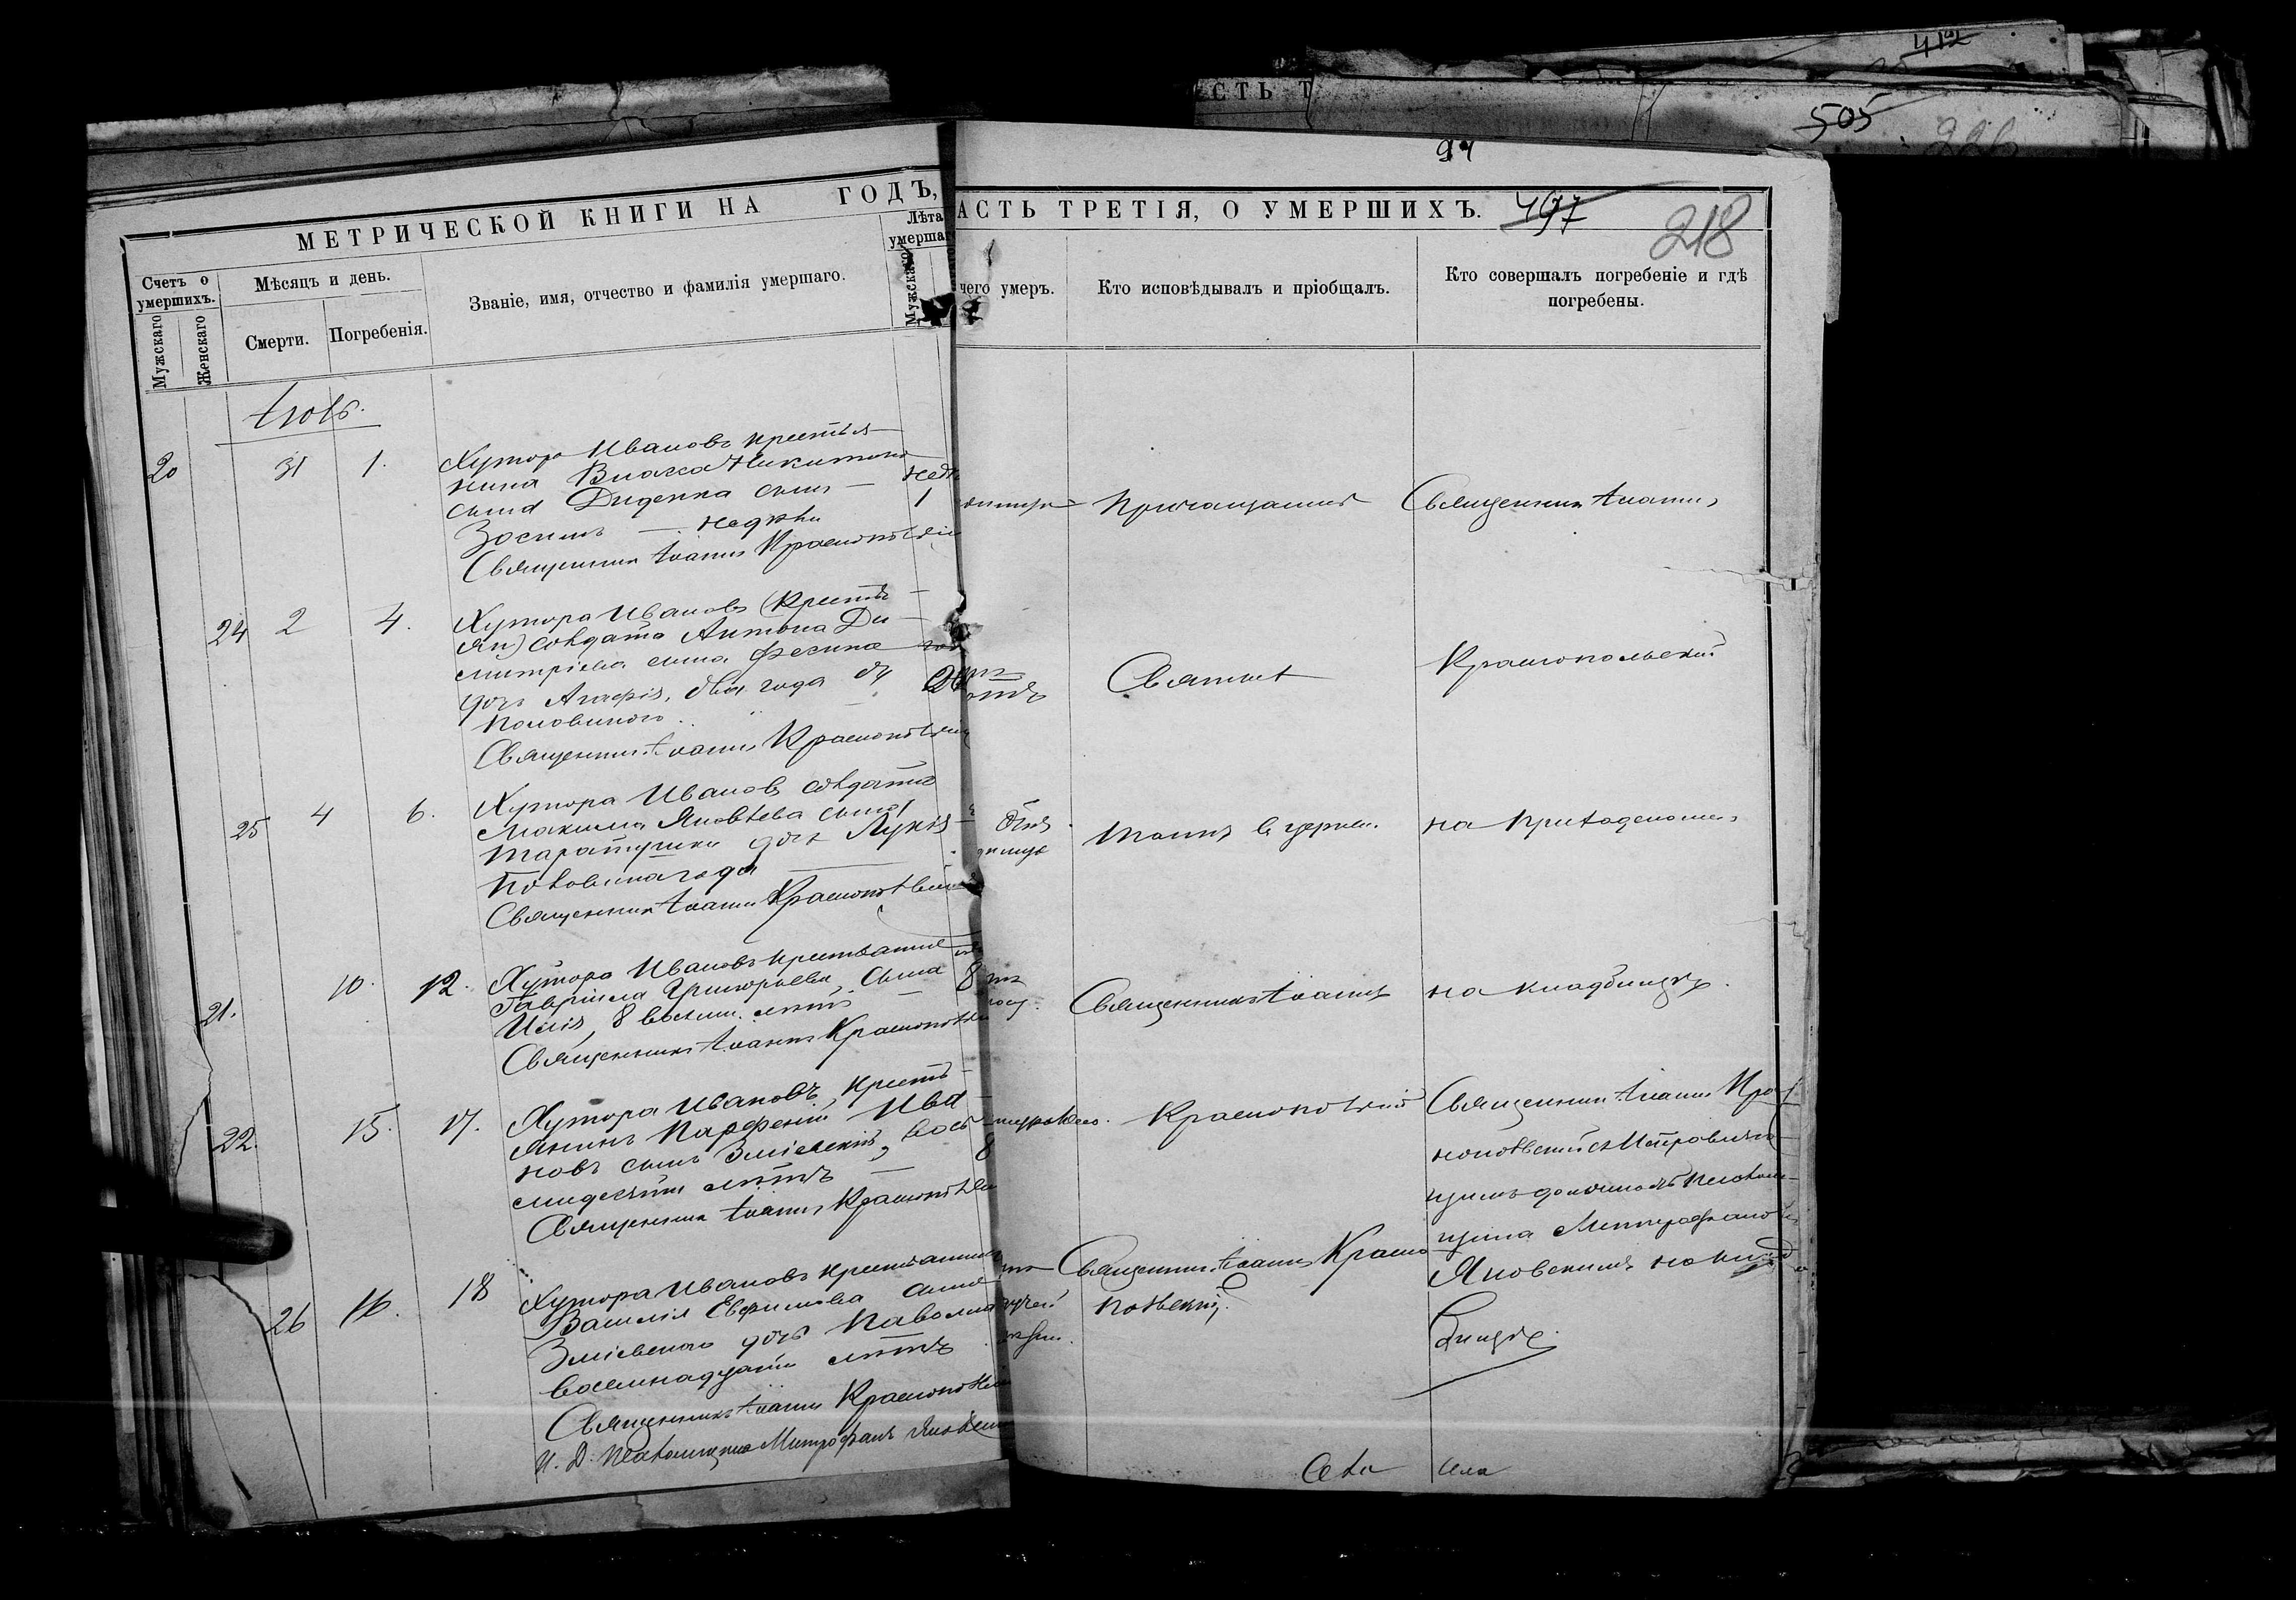 412
СТЬ Т
505
226
94
МЕТРИЧЕСКОЙ КНИГИ НА ГОДЪ,
АСТЬ ТРЕТІЯ, О УМЕРШИХЪ.
497
218
Счетъ о умершихъ.
Мужскаго
Женскаго
Мѣсяцъ и день.
Смерти.
Погребенія.
Званіе, имя, отчество и фамилія умершаго.
Лѣта умершаг
Мужскаго
чего умеръ.
Кто исповѣдывалъ и пріобщалъ.
Кто совершалъ погребеніе и гдѣ погребены.
20
31
1.
Хутора Ивановъ крестья-
нина Власа Никитина
сына Диденка сынъ
Зосимъ — недѣли
Священникъ Іоаннъ Краснопольскій
1
Причащалъ
Священникъ Іоаннъ
24
2
4.
Хутора Ивановъ (Крестья
ян) солдата Антона Ди-
митріева сына Фесика
дочь Агафія, два года съ
половиною.
Священникъ Іоаннъ Краснопольскій
Святыхъ
Краснопольскій
25
4
6.
Хутора Ивановъ солдата
Максима Яковлева сына
Таратушки дочь Лукія
Половина года
Священникъ Іоаннъ Краснопольскій
Таинъ
на приходскомъ
21.
10.
12.
Хутора Ивановъ крестьянина
Гавріила Григорьева сына
Илія, 8 восьми лѣтъ
Священникъ Іоаннъ Краснопольскій
8
Священникъ Іоаннъ
на кладбищѣ.
22.
15.
17.
Хутора Ивановъ, кресть-
янинъ Парфеній Ива-
новъ сынъ Зміевскій, вось-
мидесяти лѣтъ
Священникъ Іоаннъ Краснопольскій
8
Краснопольскій
Священникъ Іоаннъ Крас-
нопольскій съ Исправляю-
щимъ должность псалом-
щика Митрофаномъ
Яновскимъ на клад
бищѣ.
26
16.
18
Хутора Ивановъ крестьянина
Василія Евфимова сына
Зміевскаго дочь
восемнадцати лѣтъ
Священникъ Іоаннъ Краснопольскій
И. Д. Псаломщика Митрофанъ Яновскій
Священникъ Іоаннъ Красно
польскій.